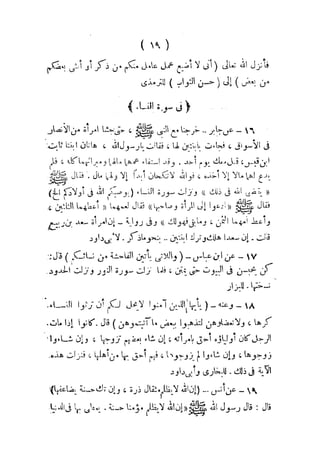 ( ١٩ )
فأنزل الله تعالى ( أنى لا أضيع عمل عامل منكم من ذكر أو أنثى بعضكم
من بعض ) إلى ( حسن الثواب ) للترمذى
﴿ فى سورة النساء ﴾
١٦ – عن جابر .. خرجنا مع النبى ﷺ ، حتى جئنا امرأة من الأنصار
فى الأسواق ، فجاءت بابنتين لها ، فقالت يارسول الله ، هاتان ابنتا ثابت
ابن قيس ، قتل معك يوم أحد . وقد استفاء عمهما مالهما وميراثهما كله ، فلم
يدع لهما مالا إلا أخذه ، فوالله لا تنكحان أبداً إلا ولهما مال . فقال ﷺ
« يقضى الله فى ذلك » ونزلت سورة النساء ( يوصيكم الله فى أولادكم الخ )
فقال ﷺ « ادعوا إلى المرأة وصاحبها » فقال لعمهما « أعطهما الثلثين ،
وأعط أمهما الثمن ، وما بقى فهو لك » وفى رواية – إن امرأة سعد بن ربيع
قالت . إن سعدا هلك وترك ابنتين .. بنحو ما ذكر . لأبى داود
١٧ – عن ابن عباس – ( واللاتى يأتين الفاحشة من نسائكم ) قال :
كن يحبسن فى البيوت حتى يمتن ، فلما نزلت سورة النور ونزلت الحدود
نسختها . للبزار
١٨ – وعنه – ( يأيها الذين آمنوا لا يحل لكم أن ترثوا النساء
كرها ، ولا تعضلوهن لتذهبوا ببعض ما آتيتموهن ) قال . كانوا إذا مات
الرجل كان أولياؤه أحق بامرأته ، إن شاء بعضهم تزوجها ، وإن شاءوا
زوجوها ، وإن شاءوا لم يزوجوها ، فهم أحق بها من أهلها ، فنزلت هذه
الآية فى ذلك . للبخارى وأبى داود
١٩ – عن أنس – ( إن الله لا يظلم مثقال ذرة ، وإن تك حسنة يضاعفها )
قال : قال رسول الله ﷺ « إن الله لا يظلم مؤمنا حسنة . يعطى بها فى الدنيا